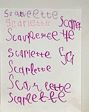 Scarlette
Scarlette Scarlet
Scarlette
Scarlette Sca
Scarlette
Scarlette
Scarlette